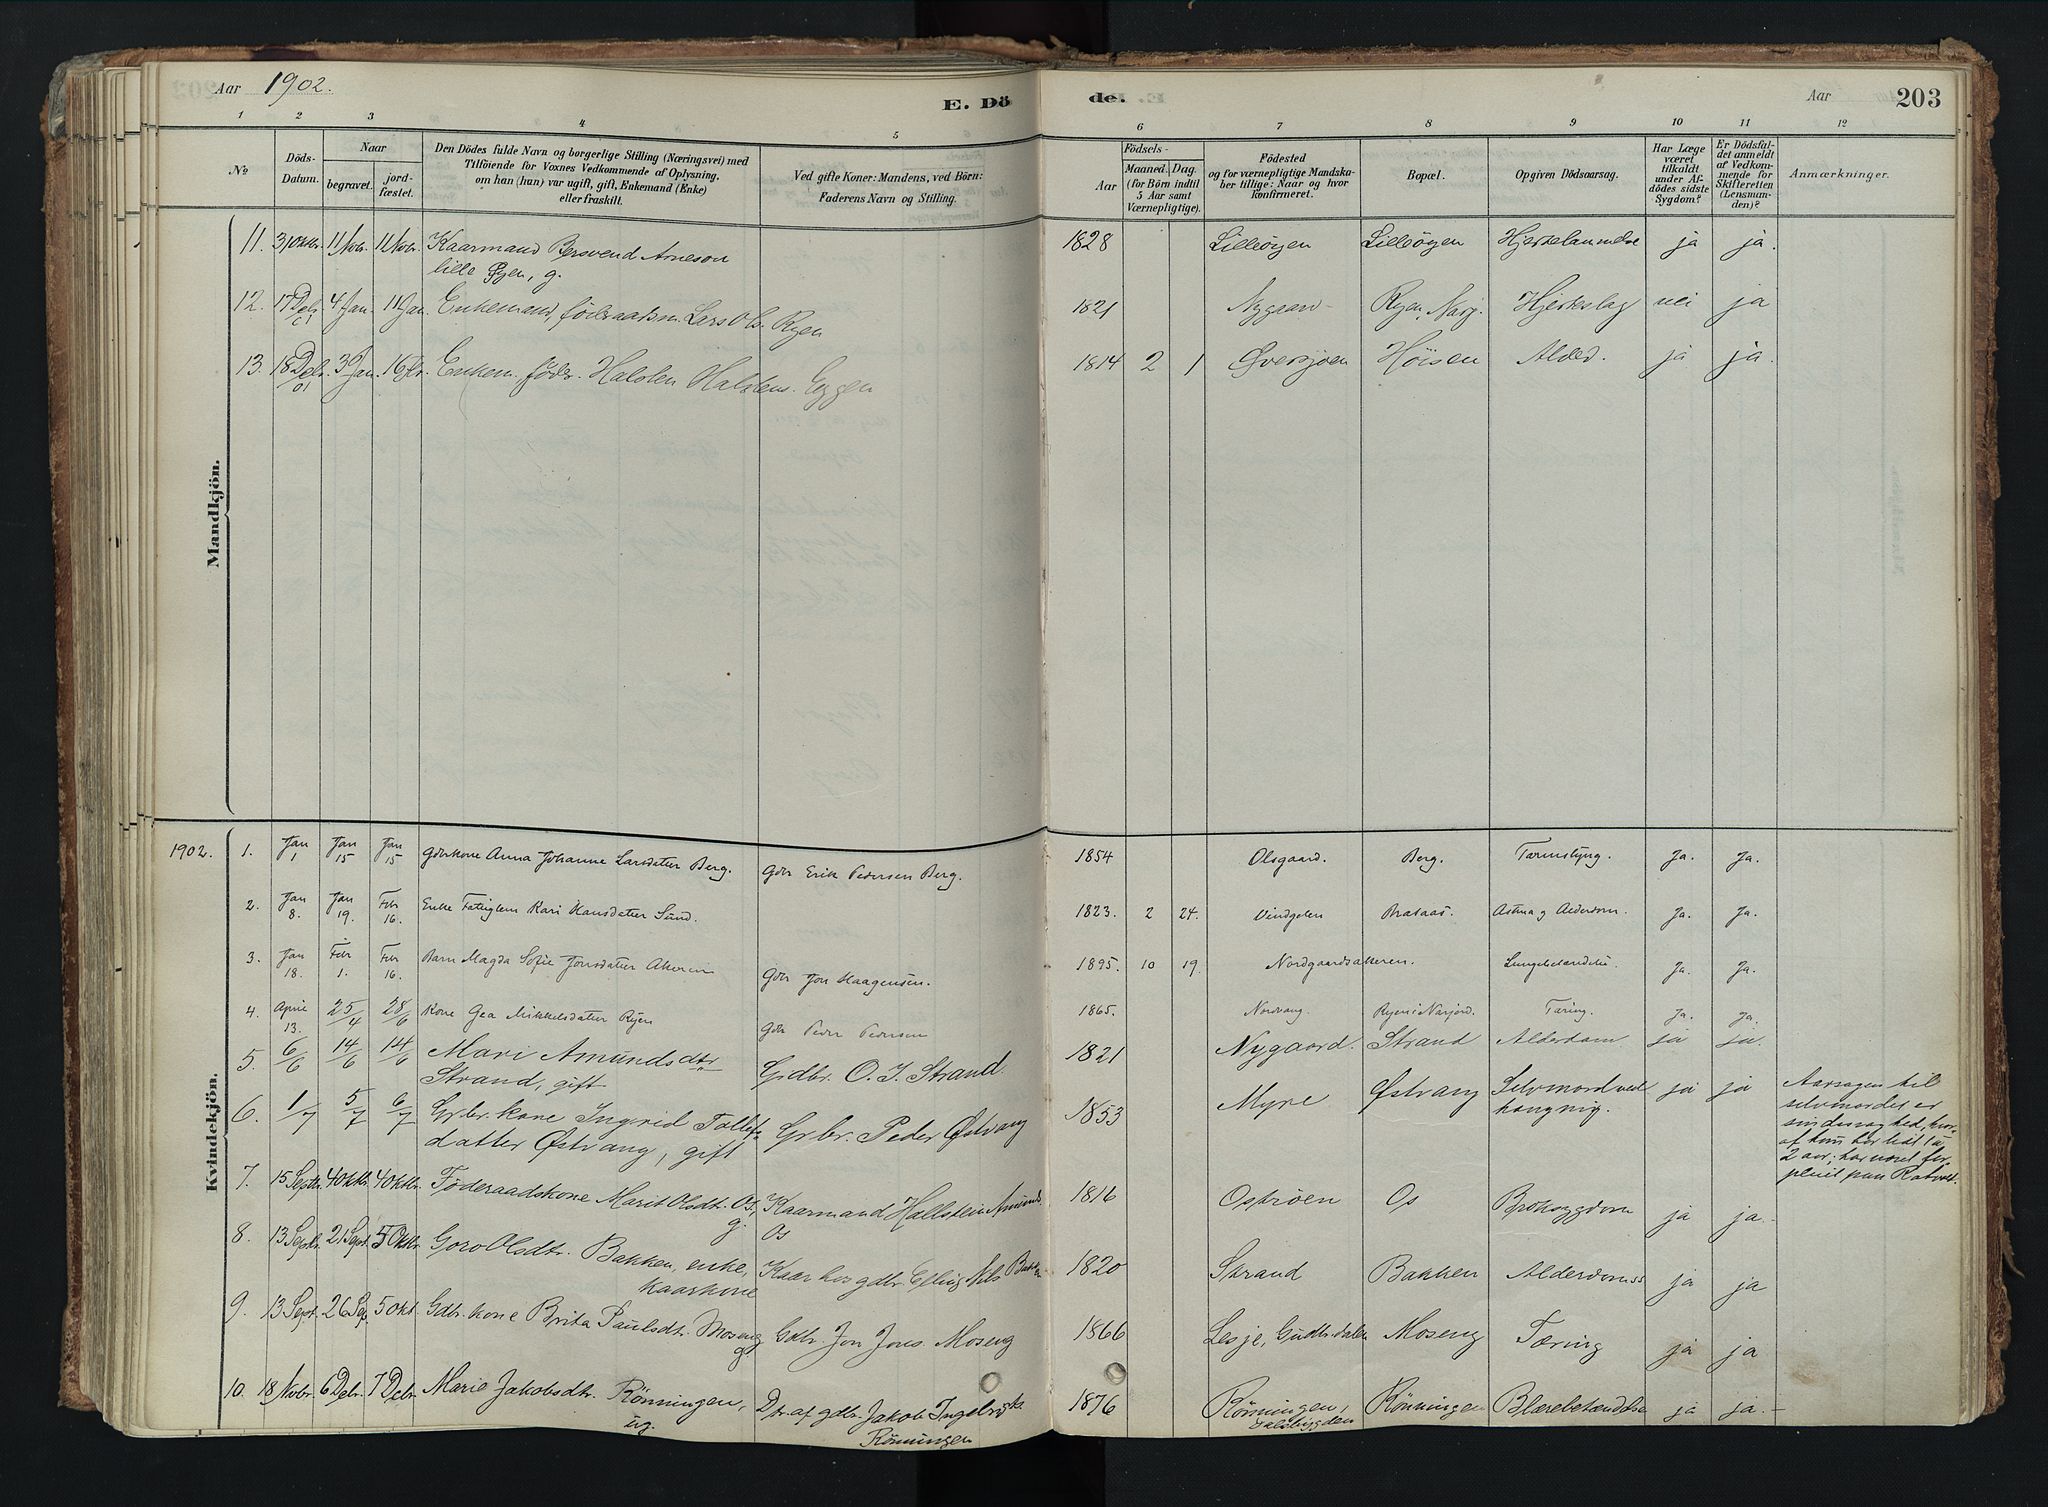 Aar 1902.
E. Dö de.
Aar
203
1 2 3 4 5 6 7 8 9 10 11 12
No
Döds-Datum.
Naar
begravet.
jord-fæstet.
Den Dödes fulde Navn og borgerlige Stilling (Næringsvei) med
Tilföiende for Voxnes Vedkommende af Oplysning,
om han (hun) var ugift, gift, Enkemand (Enke)
eller fraskilt.
Ved gifte Koner: Mandens, ved Börn:
Faderens Navn og Stilling.
Födsels-
Aar
Maaned. Dag.
(for Börn indtil
5 Aar samt
Værnepligtige).
Födested
og for værnepligtige Mandska-
ber tillige: Naar og hvor
konfirmeret.
Bopæl.
Opgiven Dödsaarsag.
Har Læge
været
tilkaldt
under Af-
dödes sidste
Sygdom?
Er Dödsfal-
det anmeldt
af Vedkom-
mende for
Skifteretten
(Lensman-
den)?
Anmærkninger.
Mandkjön.
11. 31 Oktbr. 11 Nobr. 11 Nobr. Kaarmand Bersvend Arneson 1828 Lilleøien Lilleøgen Hjertelammelse ja ja.
lille Øyen, g.
12. 17 Debr. 01 4 Jan 11 Jan. Enkemand, føderaadsm. Lars Ols. Ryen 1821 Nygaard Ryen, Narj. Hjerteslag nei ja
13. 18 Debr. 01 3 Jan. 16 Fbr. Enkem. föder. Halsten Halstens. Eggen 1814 2 1 Øversjøen Höisen Alded. ja ja.
Kvindekjön.
1902. 1. Jan 1 Jan 15 Jan 15 Gdbrkone Anna Johanne Larsdatter Berg. Gdbr Erik Pedersen Berg. 1854 Olsgaard. Berg. Tarmslyng. Ja. Ja.
2. Jan 8. Jan 19. Febr 16. Enke Fattiglem Kari Hansdatter Sund. 1823. 2 24. Vindgelen Brataas. Astma og Alderdom. Ja. Ja.
3. Jan 18. Febr 1. Febr 16. Barn Magda Sofie Jonsdatter Akeren Gdbr Jon Haagensen. 1895. 10 19. Nordgaardsakeren. Lungebetændelse Ja. Ja.
4. April 13. 25/4 28/6 Kone Gea Mikkelsdatter Ryen Gdbr Peder Pedersen 1865. Nordvang. Ryen i Narjord. Tæring. Ja. Ja.
5. 6/6 14/6 14/6 Mari Amundsdtr Grdbr. O. J. Strand. 1821 Nygaard. Strand Alderdom ja ja.
Strand, gift
6. 1/7 5/7 6/7 Grbr. kone Ingrid Tollefs Grbr. Peder Østvang 1853 Myre Østvang Selvmord ved ja ja
datter Østvang, gift hængnig.
Aarsagen til
selvmordet er
sindssvaghed, hvor-
af hun har lidt i a
2 aar; har været for-
pleiet paa Rotvold.
7. 15 Septbr. 4 Oktbr. 4 Oktbr. Føderaadskone Marit Olsdtr. Os, g. Kaarmand Hallstein Amunds. Os 1816 Ostrøen Os ja ja.
8. 13 Septbr. 21 Sept. 5 Oktbr. Goro Olsdtr. Bakken, enke, 1820 Strand Bakken Alderdomss ja ja
kaarkone Kaar hos gdbr. Elling Nils Bakken
9. 13 Sept. 26 Sep. 5 Okt. Gdbr. kone Brita Paulsdtr. Moseng g. Gdbr. Jon Jons. Moseng 1866 Lesje, Gudbr.dalen Moseng Tæring ja ja
10. 18 Nobr. 6 Debr. 7 Debr. Marie Jakobsdtr. Rönningen, Dtr. af gdbr. Jakob Ingebrigts 1876 Rönningen, Rönningen Blærebetændelse ja ja.
ug. Rönningen Dalsbygden